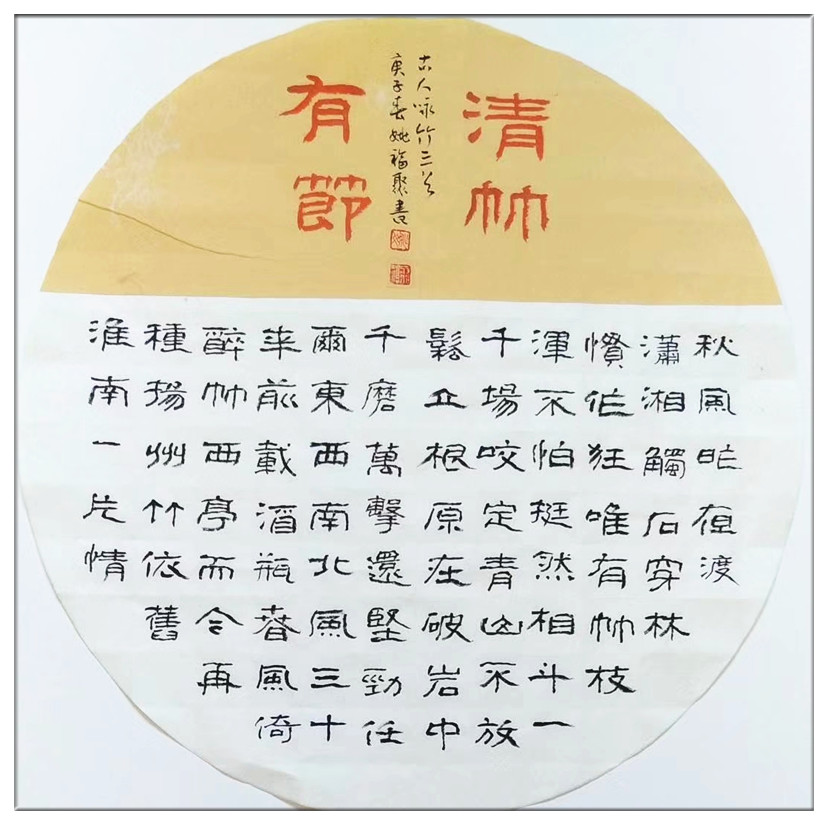 清竹
有節
古人咏竹三首
庚子春姚福聚書
秋風昨夜渡
瀟湘觸石穿林
慣作狂唯有竹枝
渾不怕挺然相斗一
千場咬定青山不放
鬆立根原在破岩中
千磨萬擊還堅勁任
爾東西南北風三十
年前載酒瓶春風倚
醉竹西亭而今再
種揚州竹依舊
淮南一片情